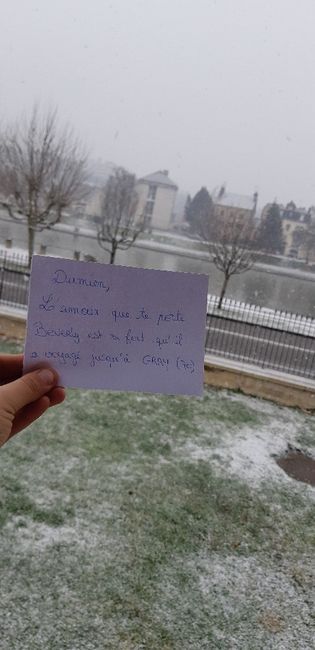 Damien,
L'amour que te porte
Beverly est si fort qu'il
a voyagé jusqu'à GRAY (70)